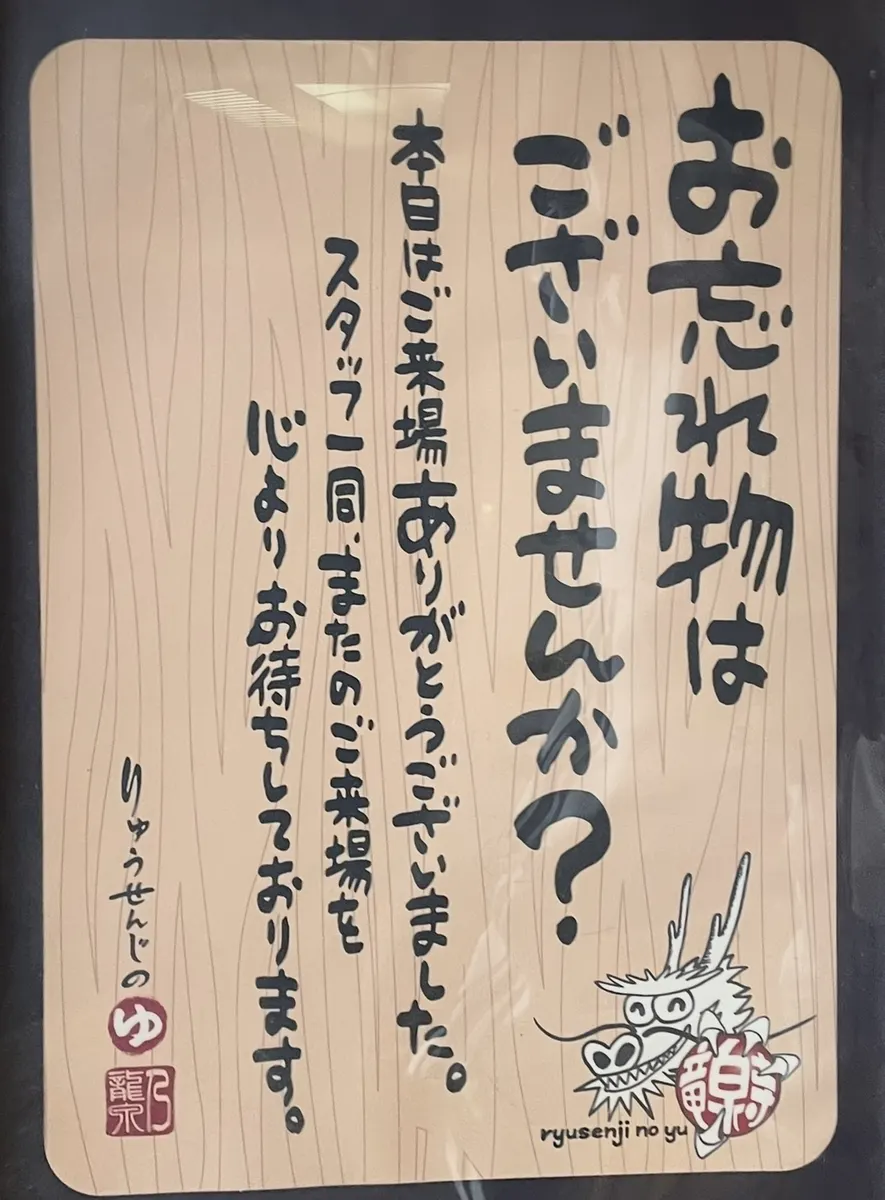 お忘れ物は
ございませんか?
本日はご来場ありがとうございました。
スタッフ一同、またのご来場を
心よりお待ちしております。
りゅうせんじの
ゆ
ryusenji no yu